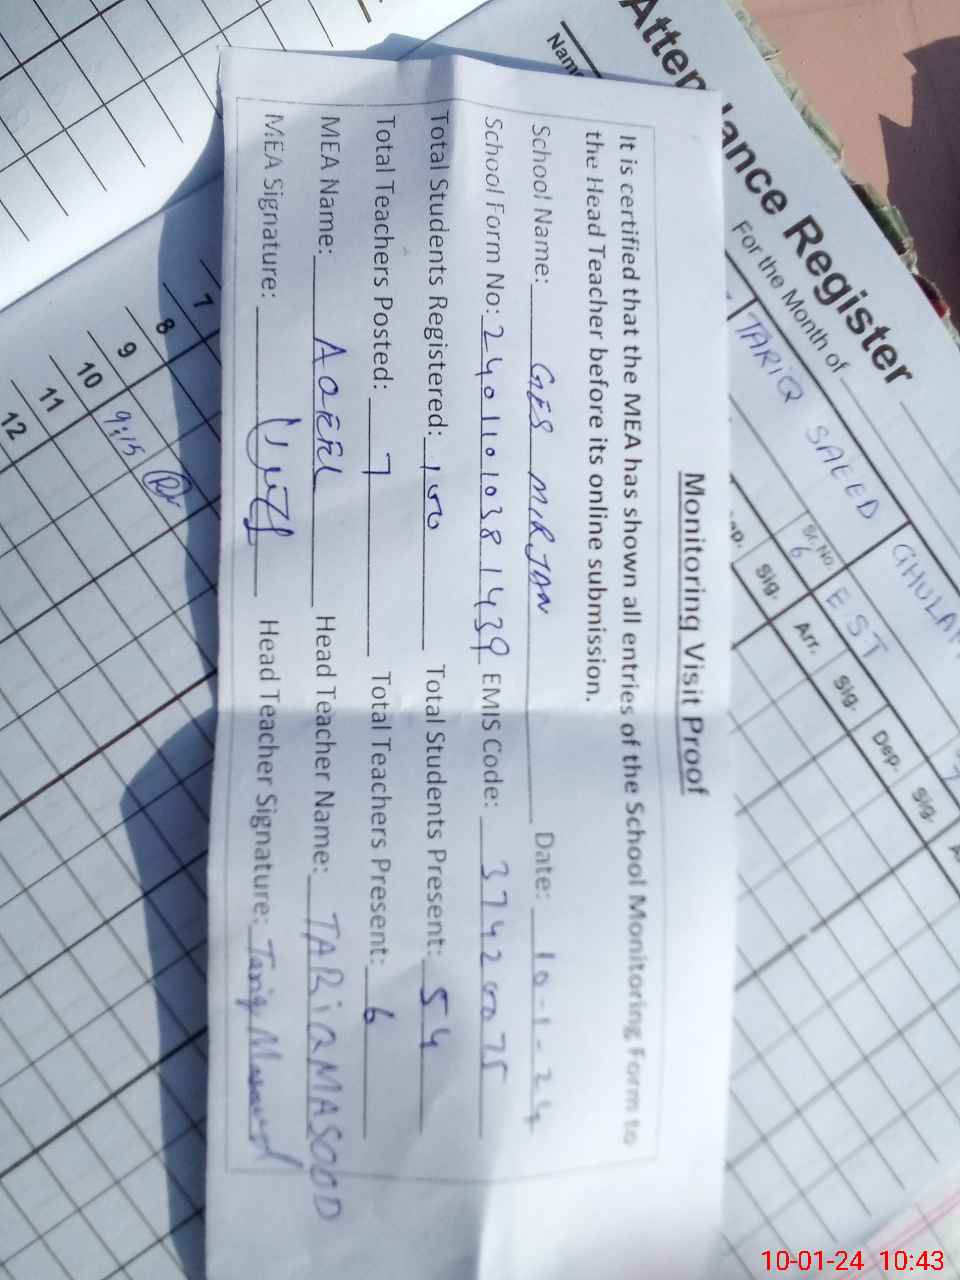 Monitoring Visit Proof
It is certified that the MEA has shown all entries of the School Monitoring Form to
the Head Teacher before its online submission.
School Name: GES MIRJAN Date: 10-1-24
School Form No: 24011010381439 EMIS Code: 37420075
Total Students Registered: 100 Total Students Present: 54
Total Teachers Posted: 7 Total Teachers Present: 6
MEA Name: Head Teacher Name: TARiQ MASOOD
MEA Signature: Head Teacher Signature: Tariq Masood
Attendance Register
Name
For the Month of
TARiQ SAEED
GHULAM
Sr. No.
6
EST
Sig. Arr. Sig. Dep. Sig.
7
8
9
10 9:15
11
12
10-01-24 10:43